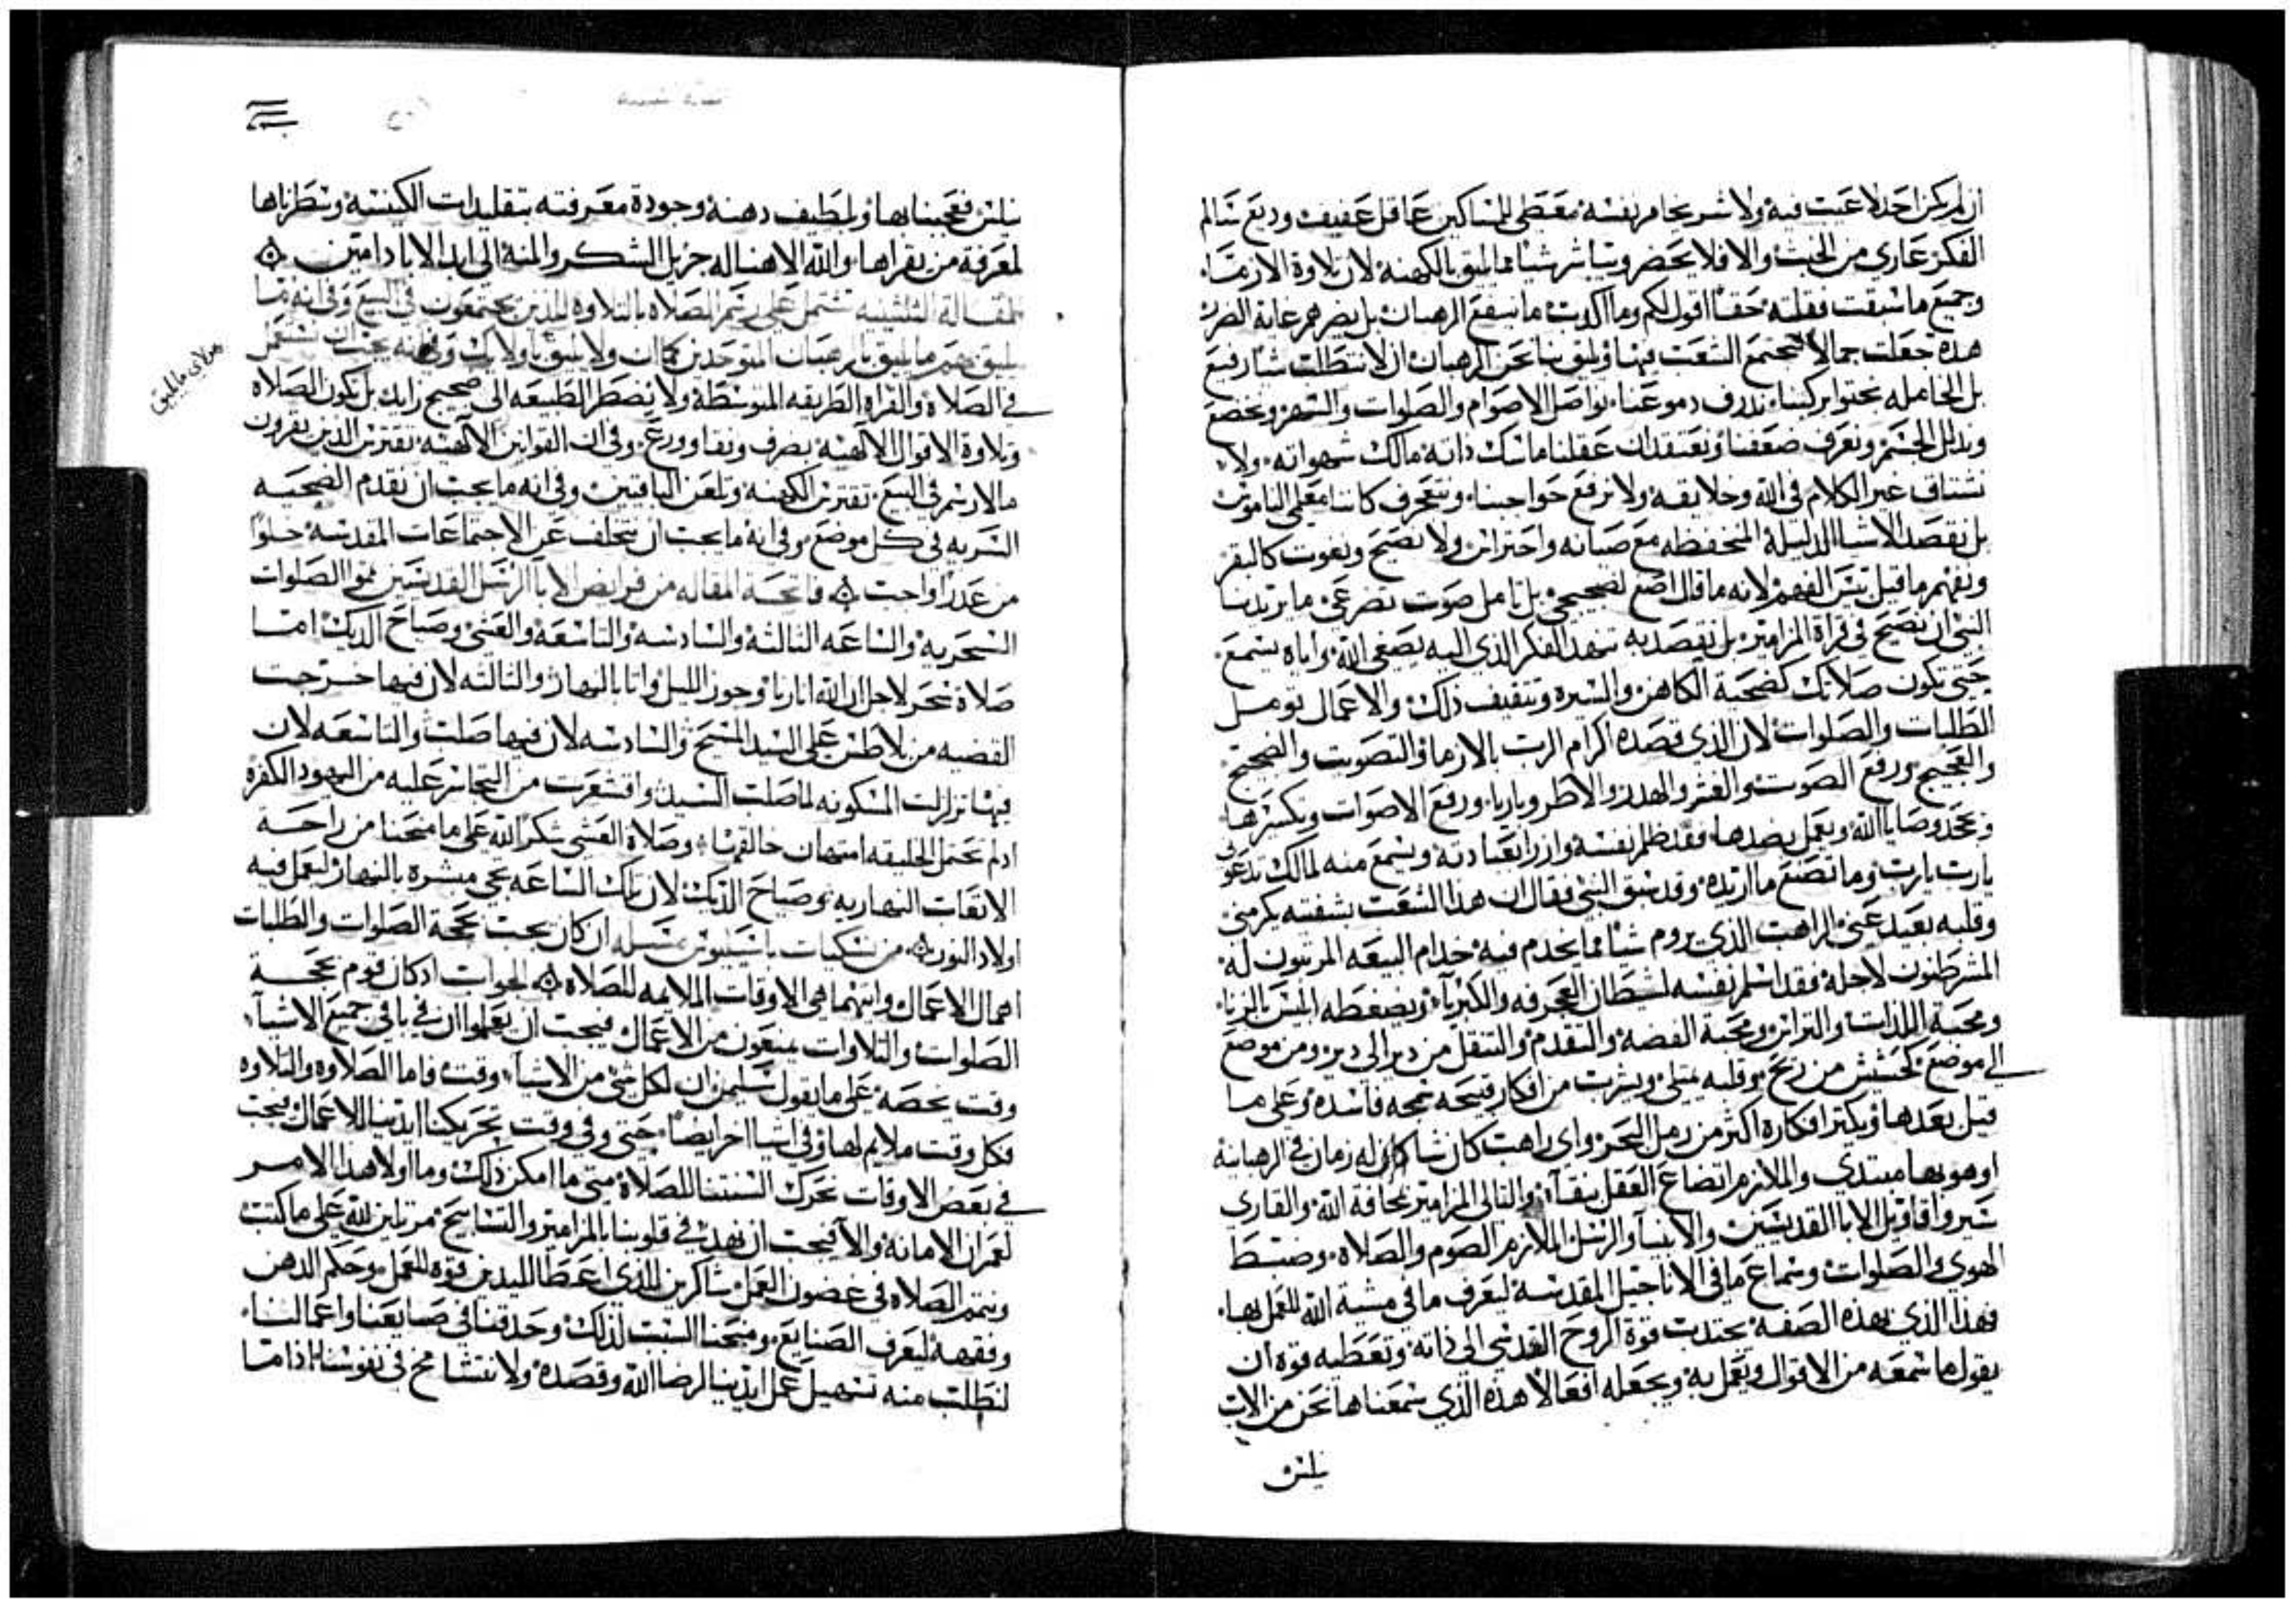 ان لم يكن احد لا عيب فيه ولا شر يخامر نفسه معطي للمساكين عاقل عفيف وديع سالم
الفكر عاري من الخبث والا فلا يحضر ويباشر شيا مما يليق بالكهنه لان تلاوة الارمسا
وجميع ما سبقت فقلته حقا اقول لكم وما اكدت ما ينفع الرهبان بل يضرهم غاية الضرر
هذه جعلت جمالا لتجتمع الشعب فيها ويليق بنا نحن الرهبان ان لا نتطلب شيا رفيع
بل الخامله نحتوا بركبنا نذرف دموعنا نواصل الاصوام والصلوات والسهر ونخضع
ونذلل الجسم ونعرف ضعفنا ونعتقد ان عقلنا ماسك ذاته مالك شهواته ولا
نشتاق غير الكلام في الله وخلايقه ولا نرفع حواجبنا ونتعجرف كاننا معلمي الناموس
بل نقصد الاشيا الذليلة المنخفظه مع صيانه واحتراس ولا نصيح ونعوت كالبقر
ونفهم ما قيل بيس الفهم لانه ما قال اصغ لضجيجي بل تامل صوت تضرعي ما يريدنا
النبي ان نصيح في قراة المزامير بل نقصد به تنهد الفكر الذي اليه يصغي الله واياه يسمع
حتى تكون صلاتك كضحية الكاهن والسيره وتثقيف ذلك والاعمال توصل
الطلبات والصلوات لان الذي قصده اكرام الرب بالارما والتصويت والضجيج
والعجيج ورفع الصوت والهدر ورفع الاصوات وتكسيرها
ونجحد وصايا الله ويعمل بضدها فقد ظلم نفسه وازرا بعبادته ويسمع منه لمالك تدعوني
يارب يارب وما تصنع ما اريده وقد سبق النبي فقال ان هذا الشعب بشفتيه يكرمني
وقلبه بعيد عني الراهب الذي يروم شيا مما يخدم فيه خدام البيعه المرتبون له
المشرطنون لاجله فقد اسلم نفسه لشيطان العجرفه والكبريآ ويضغطه ابليس بالزنا
ومحبة اللذات والتراس ومحبة الفضه والتقدم والتنقل من دير الى دير ومن موضع
الى موضع كحشيش من ريح وقلبه يمتلي ويشرب من افكار قبيحه سمجه فاسده وعلى ما
قيل بعدها ويكثر افكاره اكثر من رمل البحر واي راهب كان شابا كان له زمان في الرهبانية
او هو بها مبتدي والملازم اتضاع العقل بنقآء والتالي المزامير بمخافة الله والقاري
سير واقاويل الابا القديسين والانبيآ والرسل الملازم الصوم والصلاه وضبط
الهوي والصلوات وسماع ما في الاناجيل المقدسة ليعرف ما في مشية الله للعمل بها
فهذا الذي بهذه الصفة يجتذب قوة الروح القدسي الى ذاته وتعطيه قوه ان
يقول ما سمعه من الاقوال ويعمل به ويجعله افعالا هذه الذي سمعناها نحن من الاب
نيلس
نيلس فعجبنا بها ولطيف ذهنه وجودة معرفته بتقليدات الكنيسة وسطرناها
لمعرفة من يقراها والله الاهنا له جزيل الشكر والمنه الى ابد الاباد امين
المقالة الثلثينيه تشتمل على رسم الصلاه بالتلاوه للذين يجتمعون في البيع وفي انه ما
يليق بهم ما يليق بالرهبان المتوحدين كما ان ولا يليق باولايك وفي انه يجب ان نستعمل
هولاى ما يليق
في الصلاة والقراه الطريقه المتوسطة ولا نضطر الطبيعه الى ضجيج زايد بل تكون الصلاه
وتلاوة الاقوال الالهيه بصرف ونقا وورع وفي ان القوانين الالهيه تفترس الذين يقرون
مالا رسم في البيع تفترس الكهنه وتلعن الباقين وفي انه ما يجب ان نقدم الضحيه
السريه في كل موضع وفي انه ما يجب ان نتخلف عن الاجتماعات المقدسه خلوا
من عذر واجب فاتحة المقاله من فرايض الابآ الرسل القديسين تمموا الصلوات
السحريه والساعه الثالثه والسادسه والتاسعه والعشي وصياح الديك اما
صلاة سحر لاجل ان الله انارنا وجوز الليل واتا بالنهار والثالثه لان فيها خرجت
القضيه من بلاطس على السيد المسيح والسادسه لان فيها صلب والتاسعه لان
فيها تزلزلت المسكونه لما صلب السيد واقشعرت من التجاسر عليه من اليهود الكفره
اذ لم تحتمل الخليقه امتهان خالقها وصلاة العشي شكرا لله على ما منحنا من راحة
الاتعاب النهاريه وصياح الديك لان تلك الساعه تجي مبشره بالنهار ليعمل فيه
اولاد النور من نسكيات باسيليوس مسله ان كان يجب بحجة الصلوات والطلبات
اهمال الاعمال وايتهما هي الاوقات الملايمه للصلاه الجواب اذ كان قوم بحجة
الصلوات والتلاوات يمتنعون من الاعمال فيجب ان يعلموا ان في باقي جميع الاشيآ
وقت يخصه على ما يقول سليمن ان لكل شي من الاشيا وقت فاما الصلاه والتلاوه
فكل وقت ملايم لهما وفي اشيا اخر ايضا حتى وفي وقت تحريكنا ايدينا للاعمال يجب
في بعض الاوقات نحرك السنتنا للصلاة متى ما امكن ذلك وما اولا هذا الامر
لعمران الامانه والا فيجب ان نهذ في قلوبنا بالمزامير والتسابيح مرتلين لله على ما كتب
ونتمم الصلاه في غضون العمل شاكرين للذي اعطا لليدين قوه للعمل وحكم الذهن
وفقهه ليعرف الصنايع ومنحنا السبب لذلك وحذقنا في صنايعنا واعمالنا
لنطلب منه تسهيل عمل ايدينا لرضا الله وقصده ولا نتشامخ في نفوسنا اذا ما